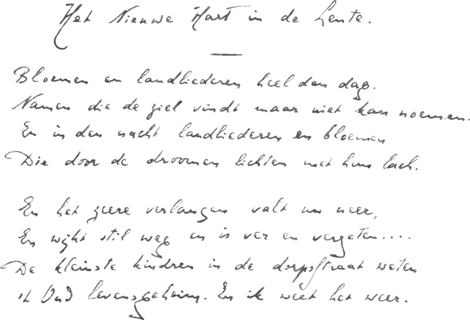 Het Nieuwe Hart in de Lente.
Bloemen en landliederen heel den dag.
Namen die de ziel vindt maar niet kan noemen.
En in den nacht landliederen en bloemen
Die door de droomen lichten met hun lach.
En het zeere verlangen valt nu neer,
En wijkt stil weg en is ver en vergeten....
De kleinste kinderen in de dorpsstraat weten
't Oud levensgeheim. En ik weet het weer.